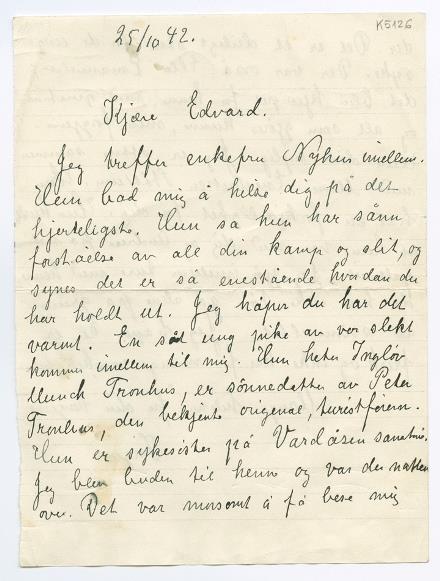 K5126
25/10 42.
Kjære Edvard.
Jeg treffer enkefru Nyhus imellem.
Hun bad mig å hilse dig på det
hjerteligste. Hun sa hun har sånn
forståelse av all din kamp og slit, og
synes det er så enestående hvordan du
har holdt ut. Jeg håper du har det
varmt. En søt ung pike av vor slekt
kommer imellem til mig. Hun heter Ingløv
Munch Tronhus, er sönnedatter av Peter
Tronhus, den bekjente original, turistförern.
Hun er sykesöster på Vardåsen sanatorie.
Jeg blev buden til henne og var der natten
over. Det var morsomt å få bese mig